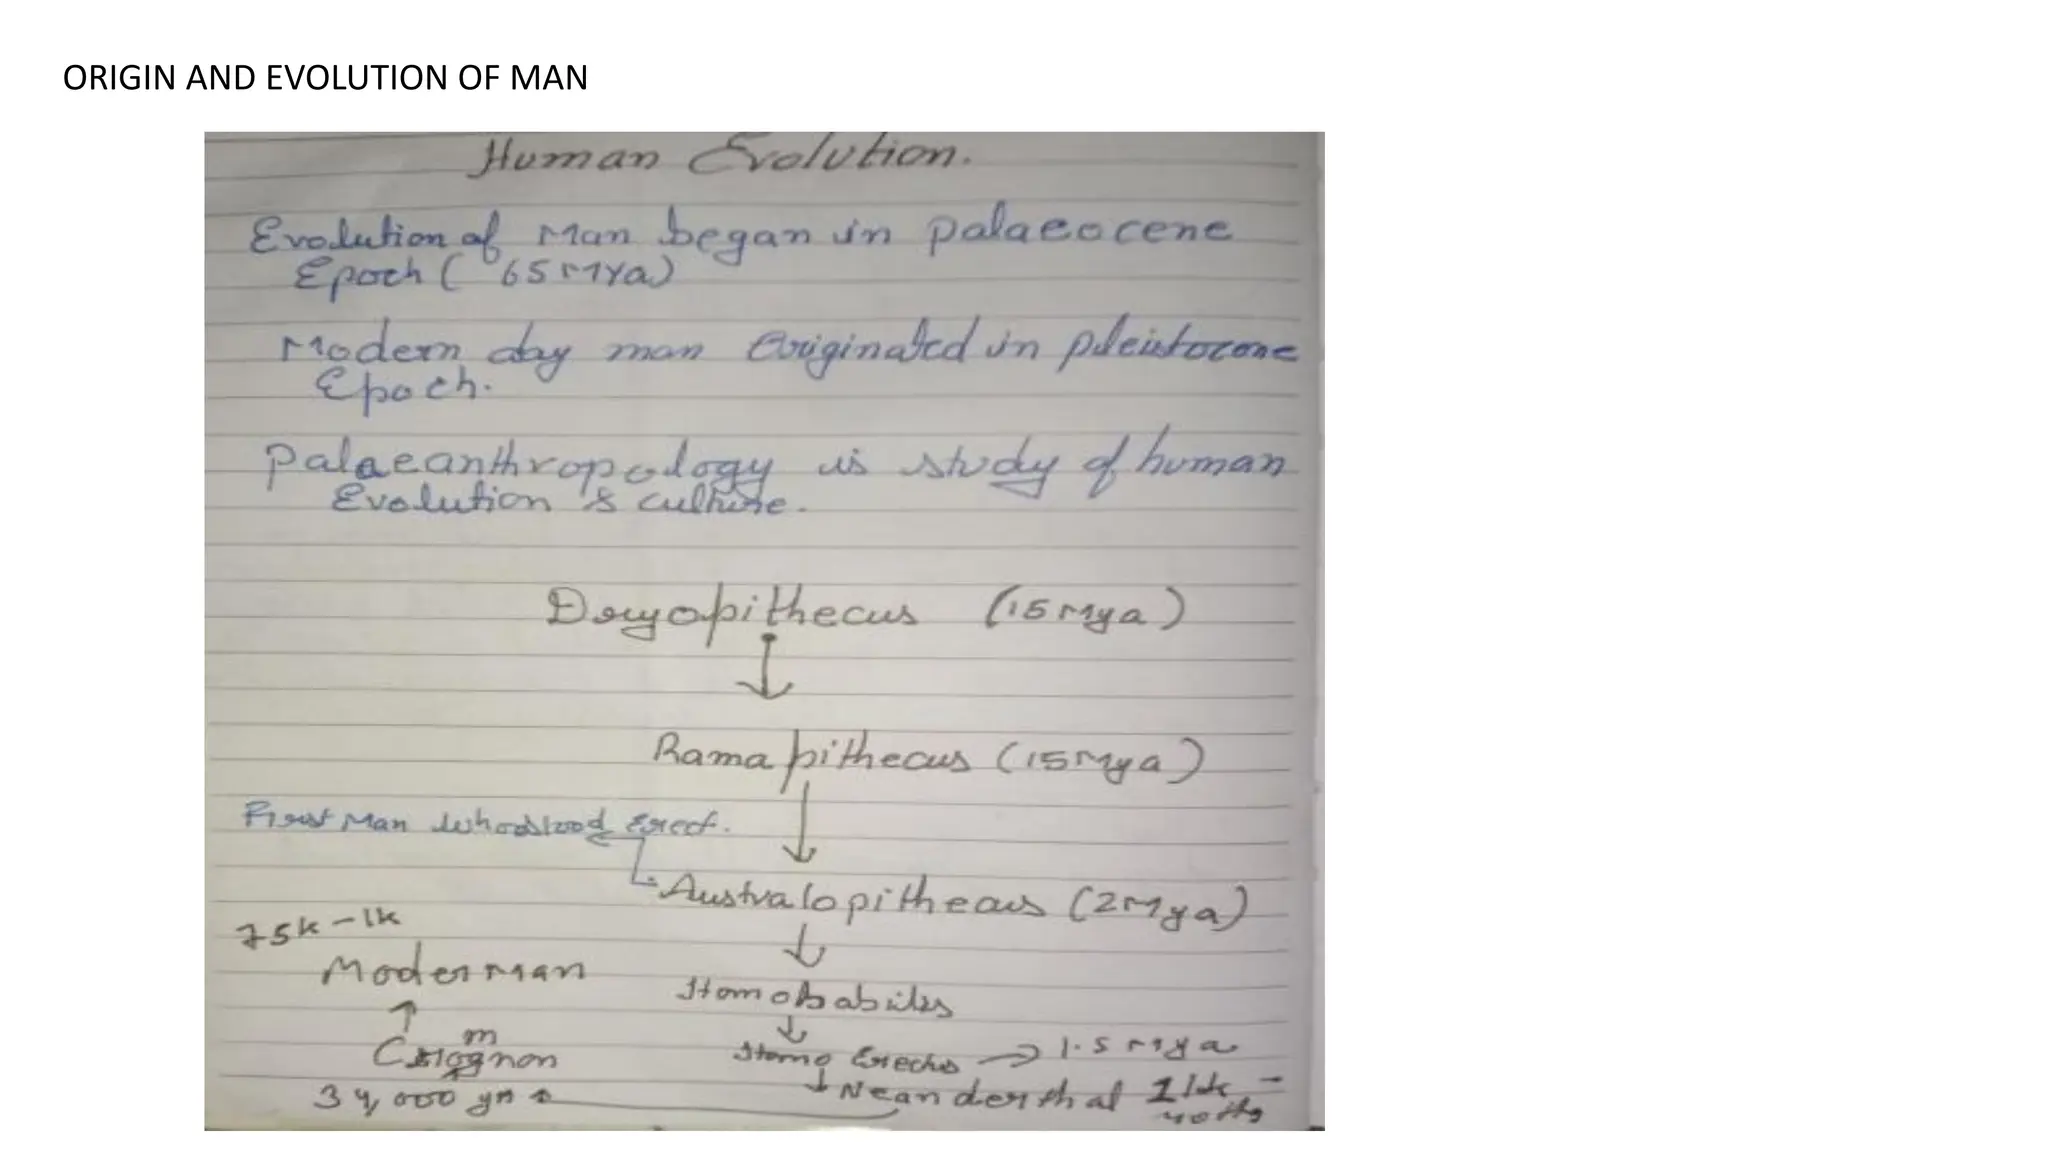 ORIGIN AND EVOLUTION OF MAN
Human Evolution.
Evolution of Man began in palaeocene
Epoch ( 65 Mya)
Modern day man Originated in pleistocene
Epoch.
palaeanthropology is study of human
Evolution & culture.
Dryopithecus (15 Mya)
Ramapithecus (15 Mya)
First Man who stood Erect.
Australopithecus (2 Mya)
75k - 1k
Moder man
Homo habiles
Cromagnon
Homo Erectus → 1.5 mya
34,000 yrs
Neanderthal